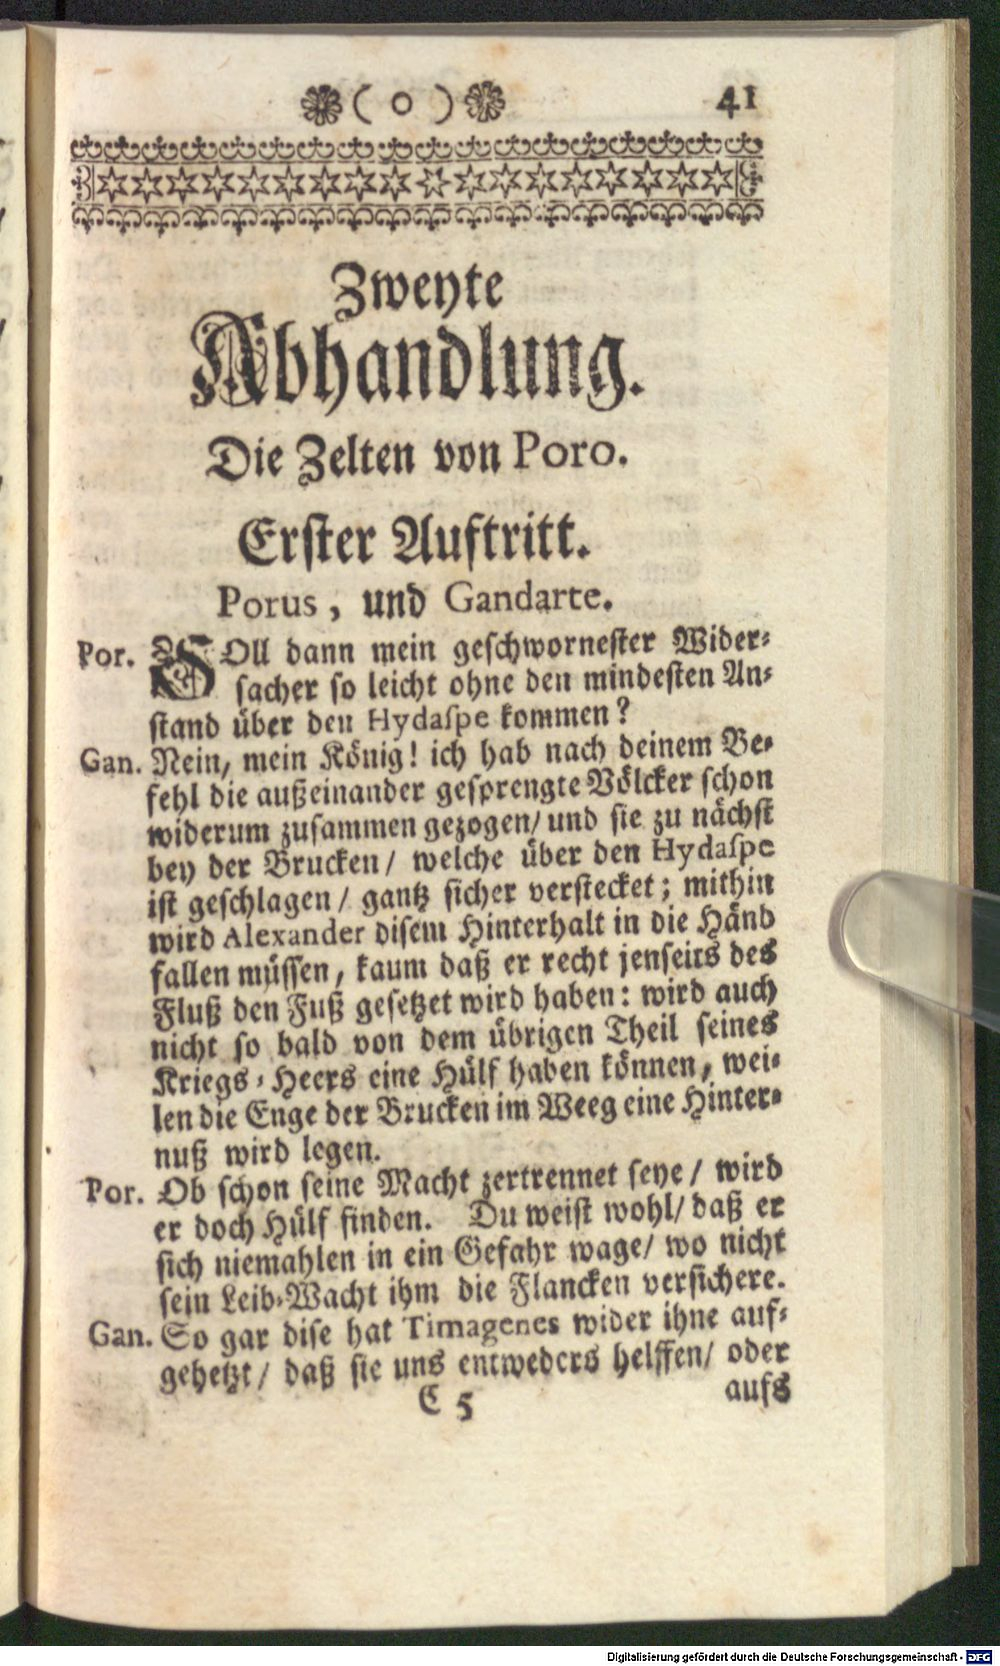 ( o ) 41
Zweyte
Abhandlung.
Die Zelten von Poro.
Erster Auftritt.
Porus, und Gandarte.
Por. SOll dann mein geschwornester Wider-
sacher so leicht ohne den mindesten An-
stand über den Hydaspe kommen?
Gan. Nein, mein König! ich hab nach deinem Be-
fehl die außeinander gesprengte Völcker schon
widerum zusammen gezogen/ und sie zu nächst
bey der Brucken/ welche über den Hydaspe
ist geschlagen/ gantz sicher verstecket; mithin
wird Alexander disem Hinterhalt in die Händ
fallen müssen, kaum daß er recht jenseits des
Fluß den Fuß gesetzet wird haben: wird auch
nicht so bald von dem übrigen Theil seines
Kriegs-Heers eine Hülf haben können, wei-
len die Enge der Brucken im Weeg eine Hinter-
nuß wird legen.
Por. Ob schon seine Macht zertrennet seye/ wird
er doch Hülf finden. Du weist wohl/ daß er
sich niemahlen in ein Gefahr wage/ wo nicht
sein Leib-Wacht ihm die Flancken versichere.
Gan. So gar dise hat Timagenes wider ihne auf-
gehetzt/ daß sie uns entweders helffen/ oder
C 5 aufs
Digitalisierung gefördert durch die Deutsche Forschungsgemeinschaft - DFG